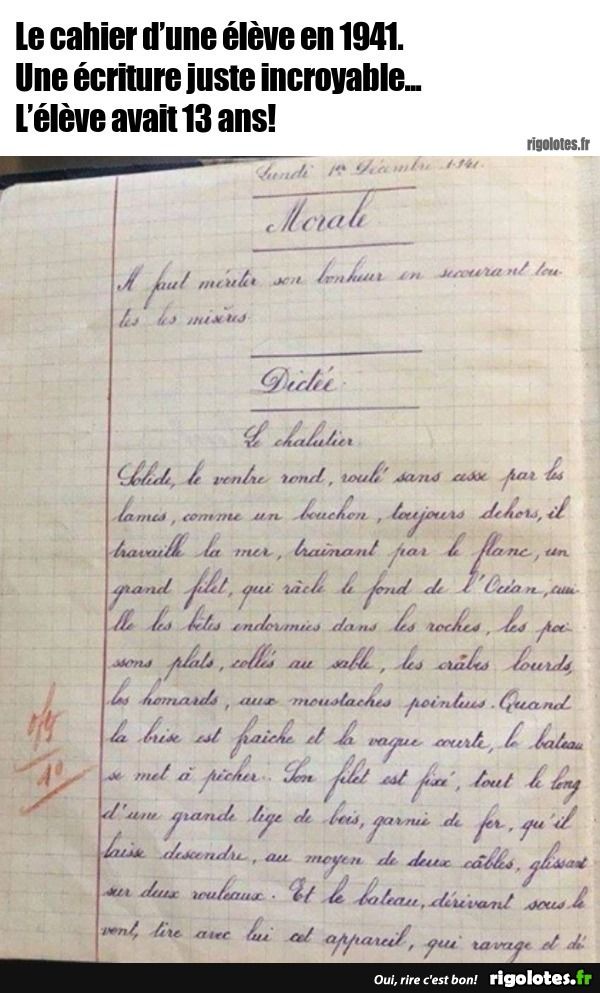 Le cahier d'une élève en 1941.
Une écriture juste incroyable...
L'élève avait 13 ans!
rigolotes.fr
Lundi 1er Décembre 1941.
Morale
Il faut mériter son bonheur en secourant tou-
tes les misères
Dictée.
Le chalutier
Solide, le ventre rond, roulé sans cesse par les
lames, comme un bouchon, toujours dehors, il
travaille la mer, traînant par le flanc, un
grand filet, qui râcle le fond de l'Océan, cueu-
lle les bêtes endormies dans les roches, les poi-
ssons plats, collés au sable, les crâbes lourds,
les homards, aux moustaches pointues. Quand
la brise est fraîche et la vague courte, le bateau
se met à pêcher. Son filet est fixé, tout le long
d'une grande tige de bois, garnie de fer, qu'il
laisse descendre, au moyen de deux câbles, glissant
sur deux rouleaux. Et le bateau, dérivant sous le
vent, tire avec lui cet appareil, qui ravage et dé
10
Oui, rire c'est bon! rigolotes.fr